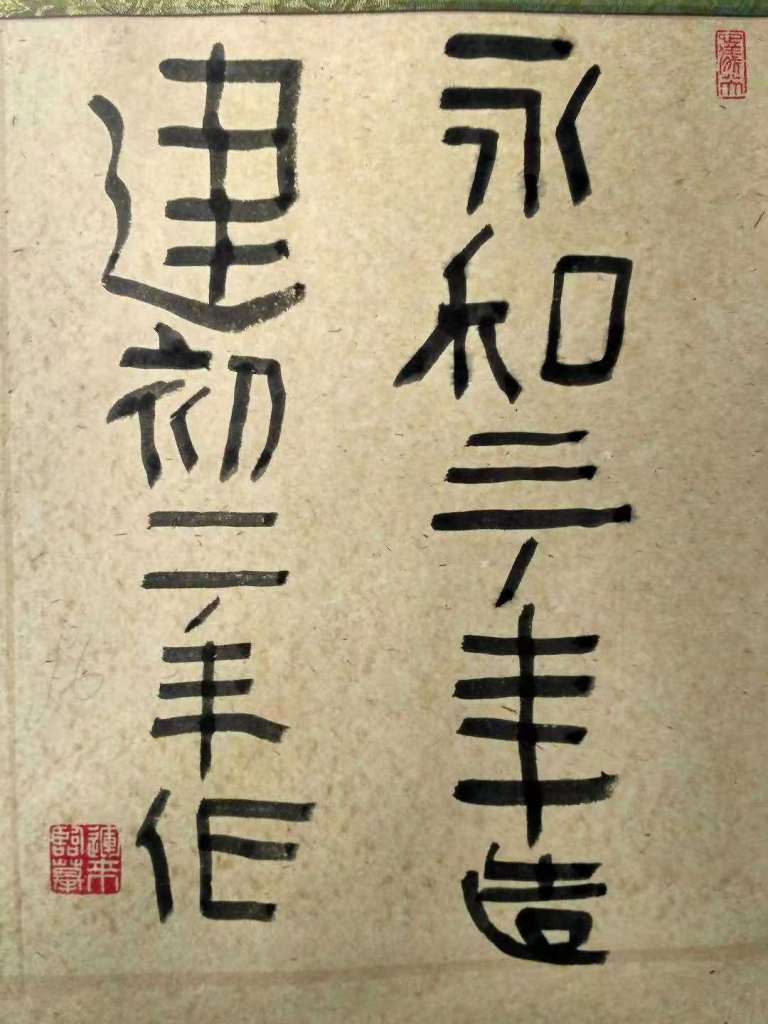 永和三年造
建初二年作